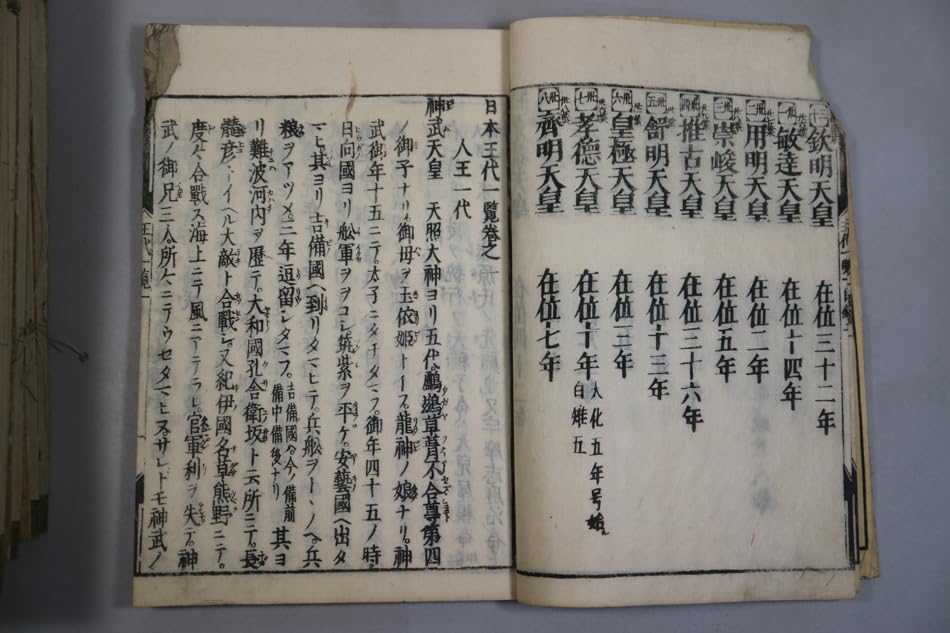 欽明天皇 在位三十二年
敏達天皇 在位十四年
用明天皇 在位二年
崇峻天皇 在位五年
推古天皇 在位三十六年
舒明天皇 在位十三年
皇極天皇 在位三年
孝德天皇 在位十年 大化五年号始 白雉五
齊明天皇 在位七年
日本王代一覧巻之一
人王一代
神武天皇 天照大神ヨリ五代鸕鷀草葺不合尊第四
ノ御子ナリ御母ヲ玉依姫トイフ龍神ノ娘ナリ神
武御年十五ニテ太子ニタチタマフ御年四十五ノ時
日向國ヨリ舩軍ヲヲコシ筑紫ヲ平ケ安藝國ヘ出タ
マヒ其ヨリ吉備國ヘ到リタマヒテ兵舩ヲトヽノヘ兵
粮ヲアツメ三年逗留シタマフ吉備國ハ今ノ備前備中備後ナリ其ヨ
リ難波河内ヲ歴テ大和國孔舎衛坂ト云所ニテ長
髓彦トイヘル大敵ト合戰シ又紀伊國名草熊野ニテ
度々合戰ス海上ニテ風ニアテラレ官軍利ヲ失テ神
武ノ御兄三人所々ニテウセタマヒヌサレドモ神武ノ